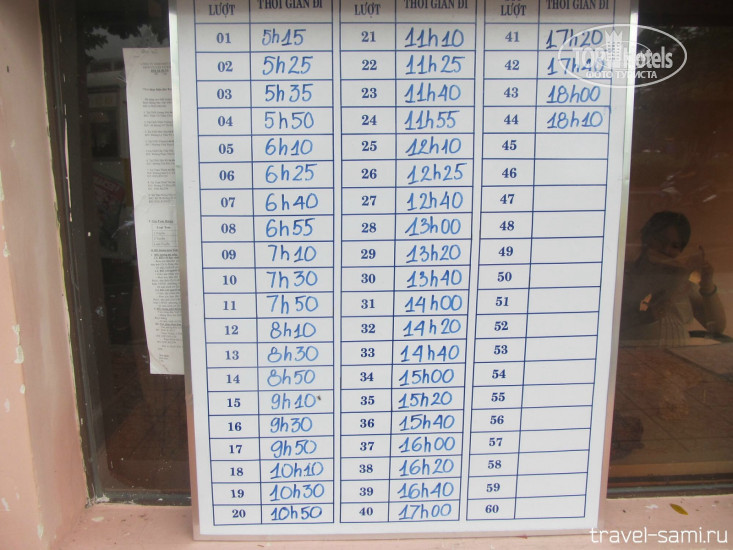 LƯỢT THỜI GIAN ĐI LƯỢT THỜI GIAN ĐI LƯỢT THỜI GIAN ĐI
01 5h15 21 11h10 41 17h20
02 5h25 22 11h25 42
03 5h35 23 11h40 43 18h00
04 5h50 24 11h55 44 18h10
05 6h10 25 12h10 45
06 6h25 26 12h25 46
07 6h40 27 12h40 47
08 6h55 28 13h00 48
09 7h10 29 13h20 49
10 7h30 30 13h40 50
11 7h50 31 14h00 51
12 8h10 32 14h20 52
13 8h30 33 14h40 53
14 8h50 34 15h00 54
15 9h10 35 15h20 55
16 9h30 36 15h40 56
17 9h50 37 16h00 57
18 10h10 38 16h20 58
19 10h30 39 16h40 59
20 10h50 40 17h00 60
TOP Hotels
ФОТО ТУРИСТА
travel-sami.ru